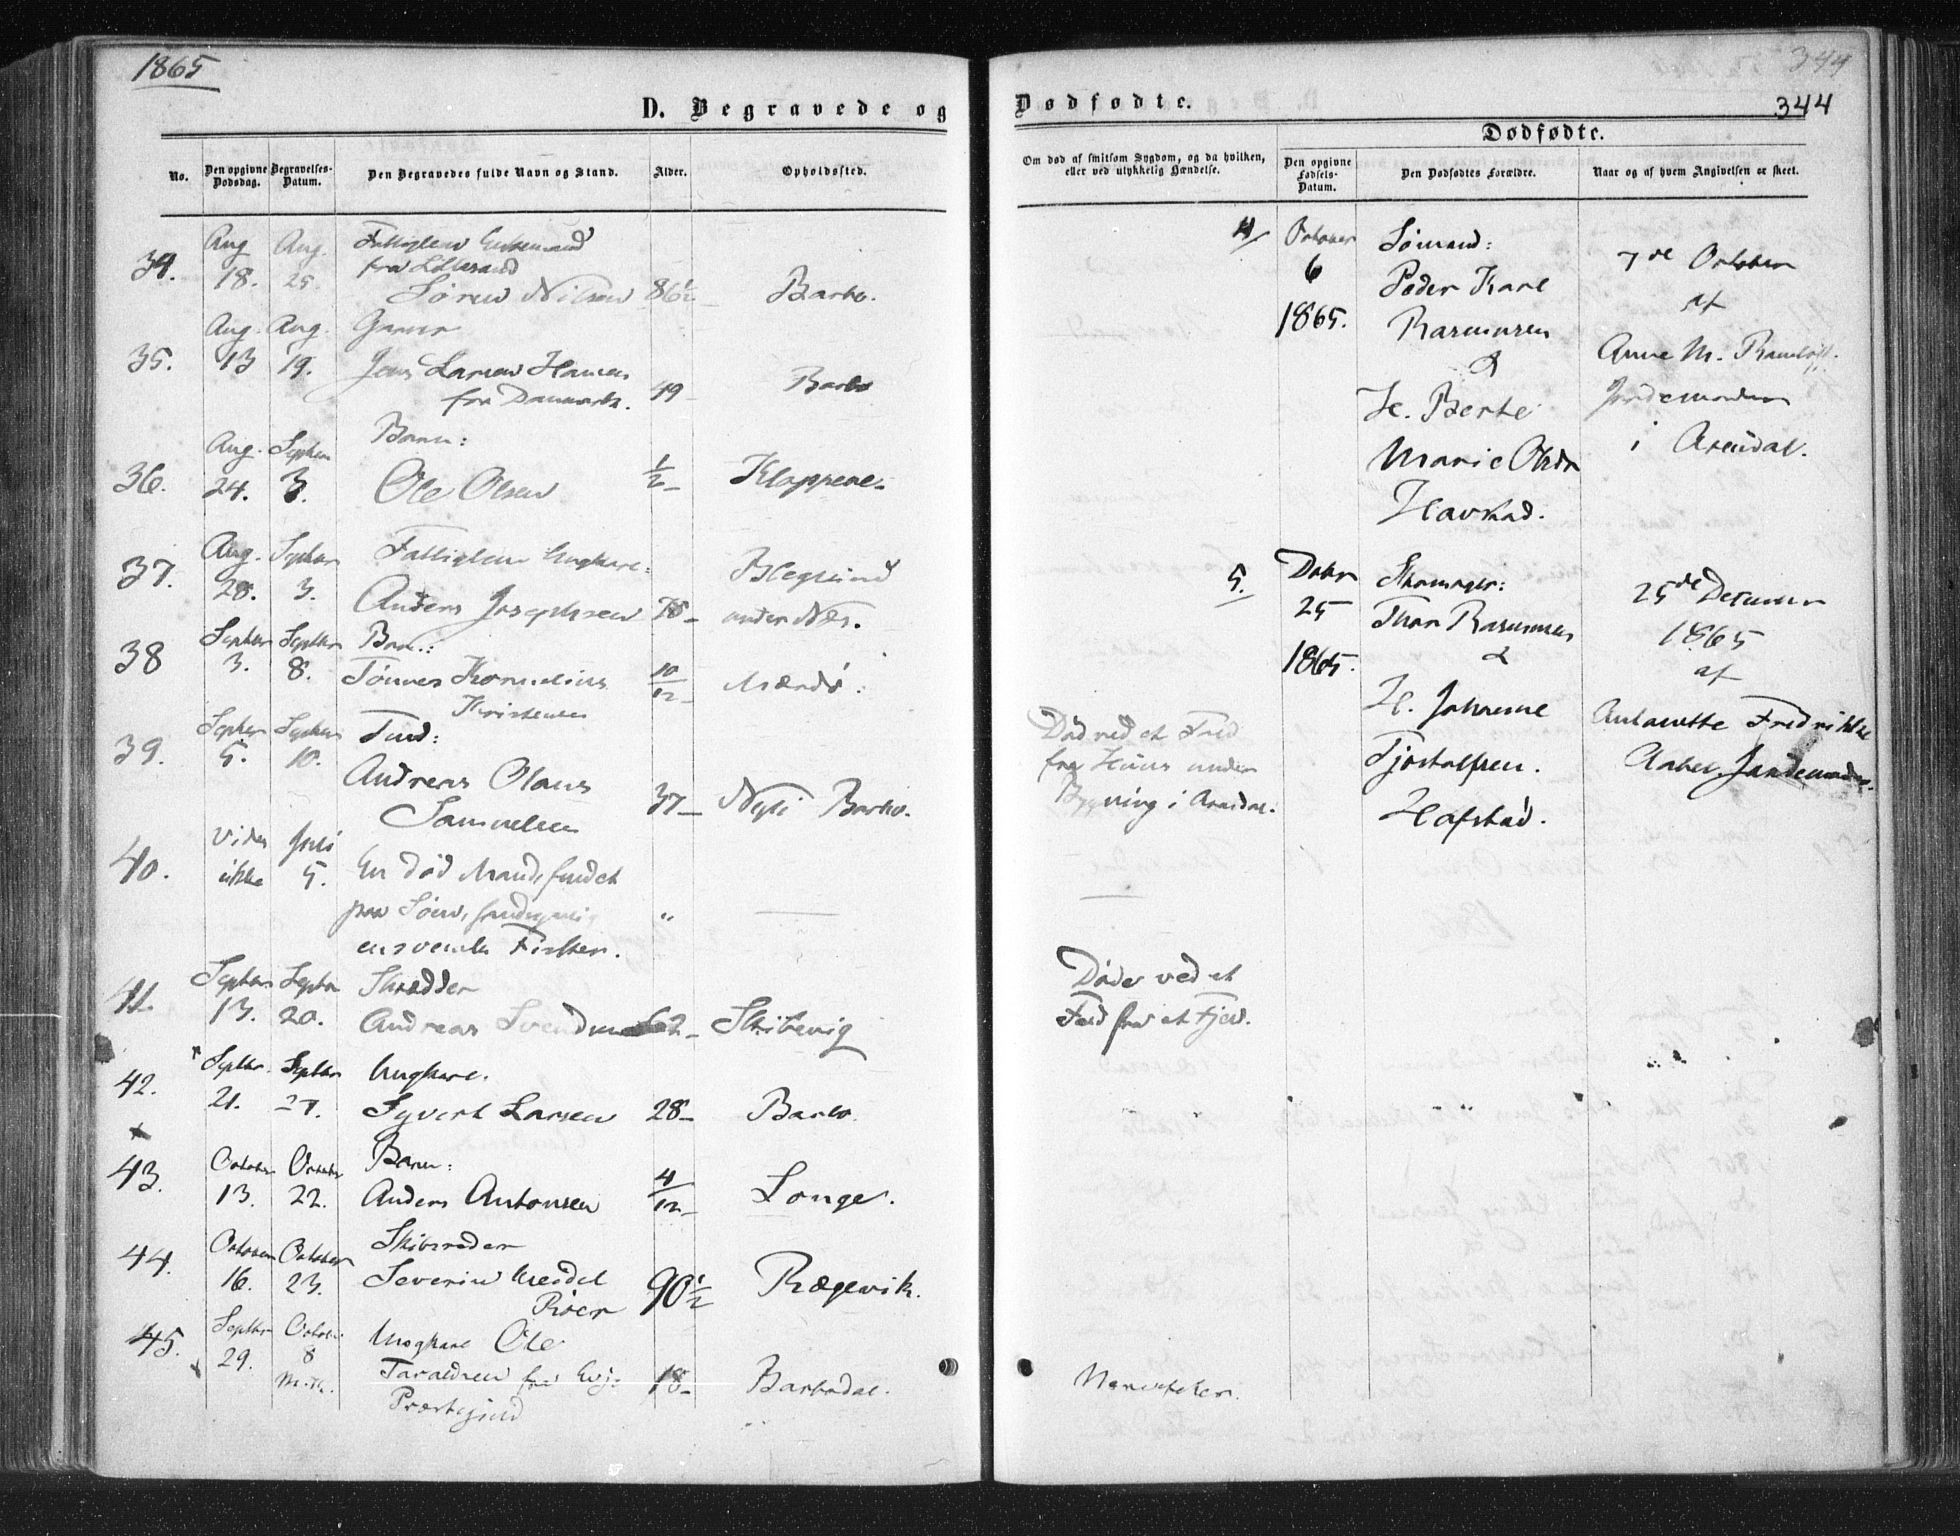 1865
344
344
D. Begravede og
Dødfødte.
Dødfødte.
No.
Den opgivne Dødsdag.
Begravelses-Datum.
Den Begravedes fulde Navn og Stand.
Alder.
Opholdssted.
Om død af smitsom Sygdom, og da hvilken,
eller ved ulykkelig Hændelse.
Den opgivne
Fødsels-
Datum.
Den Dødfødtes Forældre.
Naar og af hvem Angivelsen er skeet.
34.
Aug 18.
Aug. 25.
Fattiglem Enkemand
fra Lillesand
Søren Nilsen 86½
Barbo.
35.
Aug. 13
Aug. 19.
Garver
Jens Larsen Hansen
fra Danmark. 49
Barbo
36.
Aug. 24.
Septbr 3.
Barn:
Ole Olsen ½
Kloppene.
37.
Aug. 28.
Septbr 3.
Fattiglem Ungkarl:
Anders Josephsen 78
under Næs.
38
Septbr 3.
Septbr 8.
Barn:
Tønnes Kornelius
Kristensen
10/12
Mærdø.
39.
Septbr 5.
Septbr 10.
Tind:
Andreas Olaus
Samuelsen
37
Barbo.
Død ved et Fald
fra Huus under
Bygning i Arendal.
40.
Vides ikke
Juli 5.
En død Mand, fundet
paa Søen, sandsynlig
en svensk Fisker.
"
41.
Septbr 13.
Septbr 20.
Skrædder
Andreas Svendsen
Skibevig
Døde ved et
Fald fra et Fjeld.
42.
Septbr. 21.
Septbr 27.
Ungkarl.
Syvert Larsen 28
Barbo.
43.
October 13.
October 22.
Barn:
Anders Antonsen 4/12
Longe.
44.
October 16.
October 23.
Skibsreder
Severin Weidel
Røer 90½
Rægevik.
45.
Septbr 29.
October 8
Ungkarl Ole
Taraldsen fra Evje
Præstegjeld
18
Barbodal.
Nervefeber.
4
October
6
1865.
Sømand:
Peder Karl
Rasmusen
&
H. Berte
Marie Olsdr
Havstad.
7de October
af
Anne M.
Jordemoder
i Arendal.
5.
Decbr
25
1865.
Skomager:
Thor Rasmussen
&
H. Johanne
Tjøstolfsen.
Hafstad.
25de December
1865
af
Antonette Fredrikke
Aabel, Jordemoder.